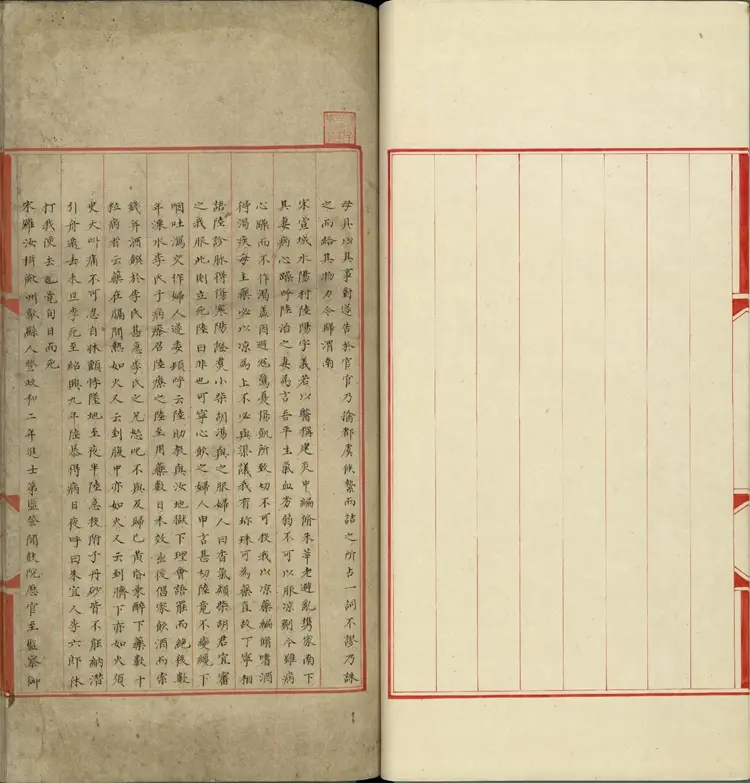 毋具以其事對遂告於官官乃擒都虞候繫而詰之所占一詞不謬乃誅
之而給其物力令歸渭南
宋宣城水陽村陸陽字義若以醫稱建炎中編脩朱莘老避亂携家南下
其妻病心躁呼陸治之妻為言吾平生氣血劣弱不可以服凉劑今雖病
心躁而不作渴蓋因避冦驚憂傷飢所致切不可投我以凉藥編脩嗜酒
得渴疾每主藥必以凉為上不必與渠議我有珍珠可為藥直故丁寧相
語陸診脉得傷寒陽證煑小柴胡湯與之服婦人曰香氣類柴胡君宜審
之我服此則立死陸曰非也可寧心飲之婦人申言甚切陸竟不變纔下
咽吐瀉交作婦人遽委頓呼云陸助教與汝地獄下理會語罷而絕後數
年溧水李氏子病瘵召陸療之陸至用藥數日未效出從倡家飲酒而索
錢并酒饌於李氏甚急李氏之兄怒叱不與及歸已黃昏乘醉下藥數十
粒病者云藥在膈間熱如火又云到腹中亦如火又云到臍下亦如火須
臾大叫痛不可忍自牀顛悸墜地至夜半陸急投附子丹砂皆不能納潛
引舟遁去未旦李死至紹興九年陸暴得病日夜呼曰朱宜人李六郎休
打我便去也竟旬日而死
宋羅汝楫徽州歙縣人登政和二年進士第監登聞鼓院歷官至監察御